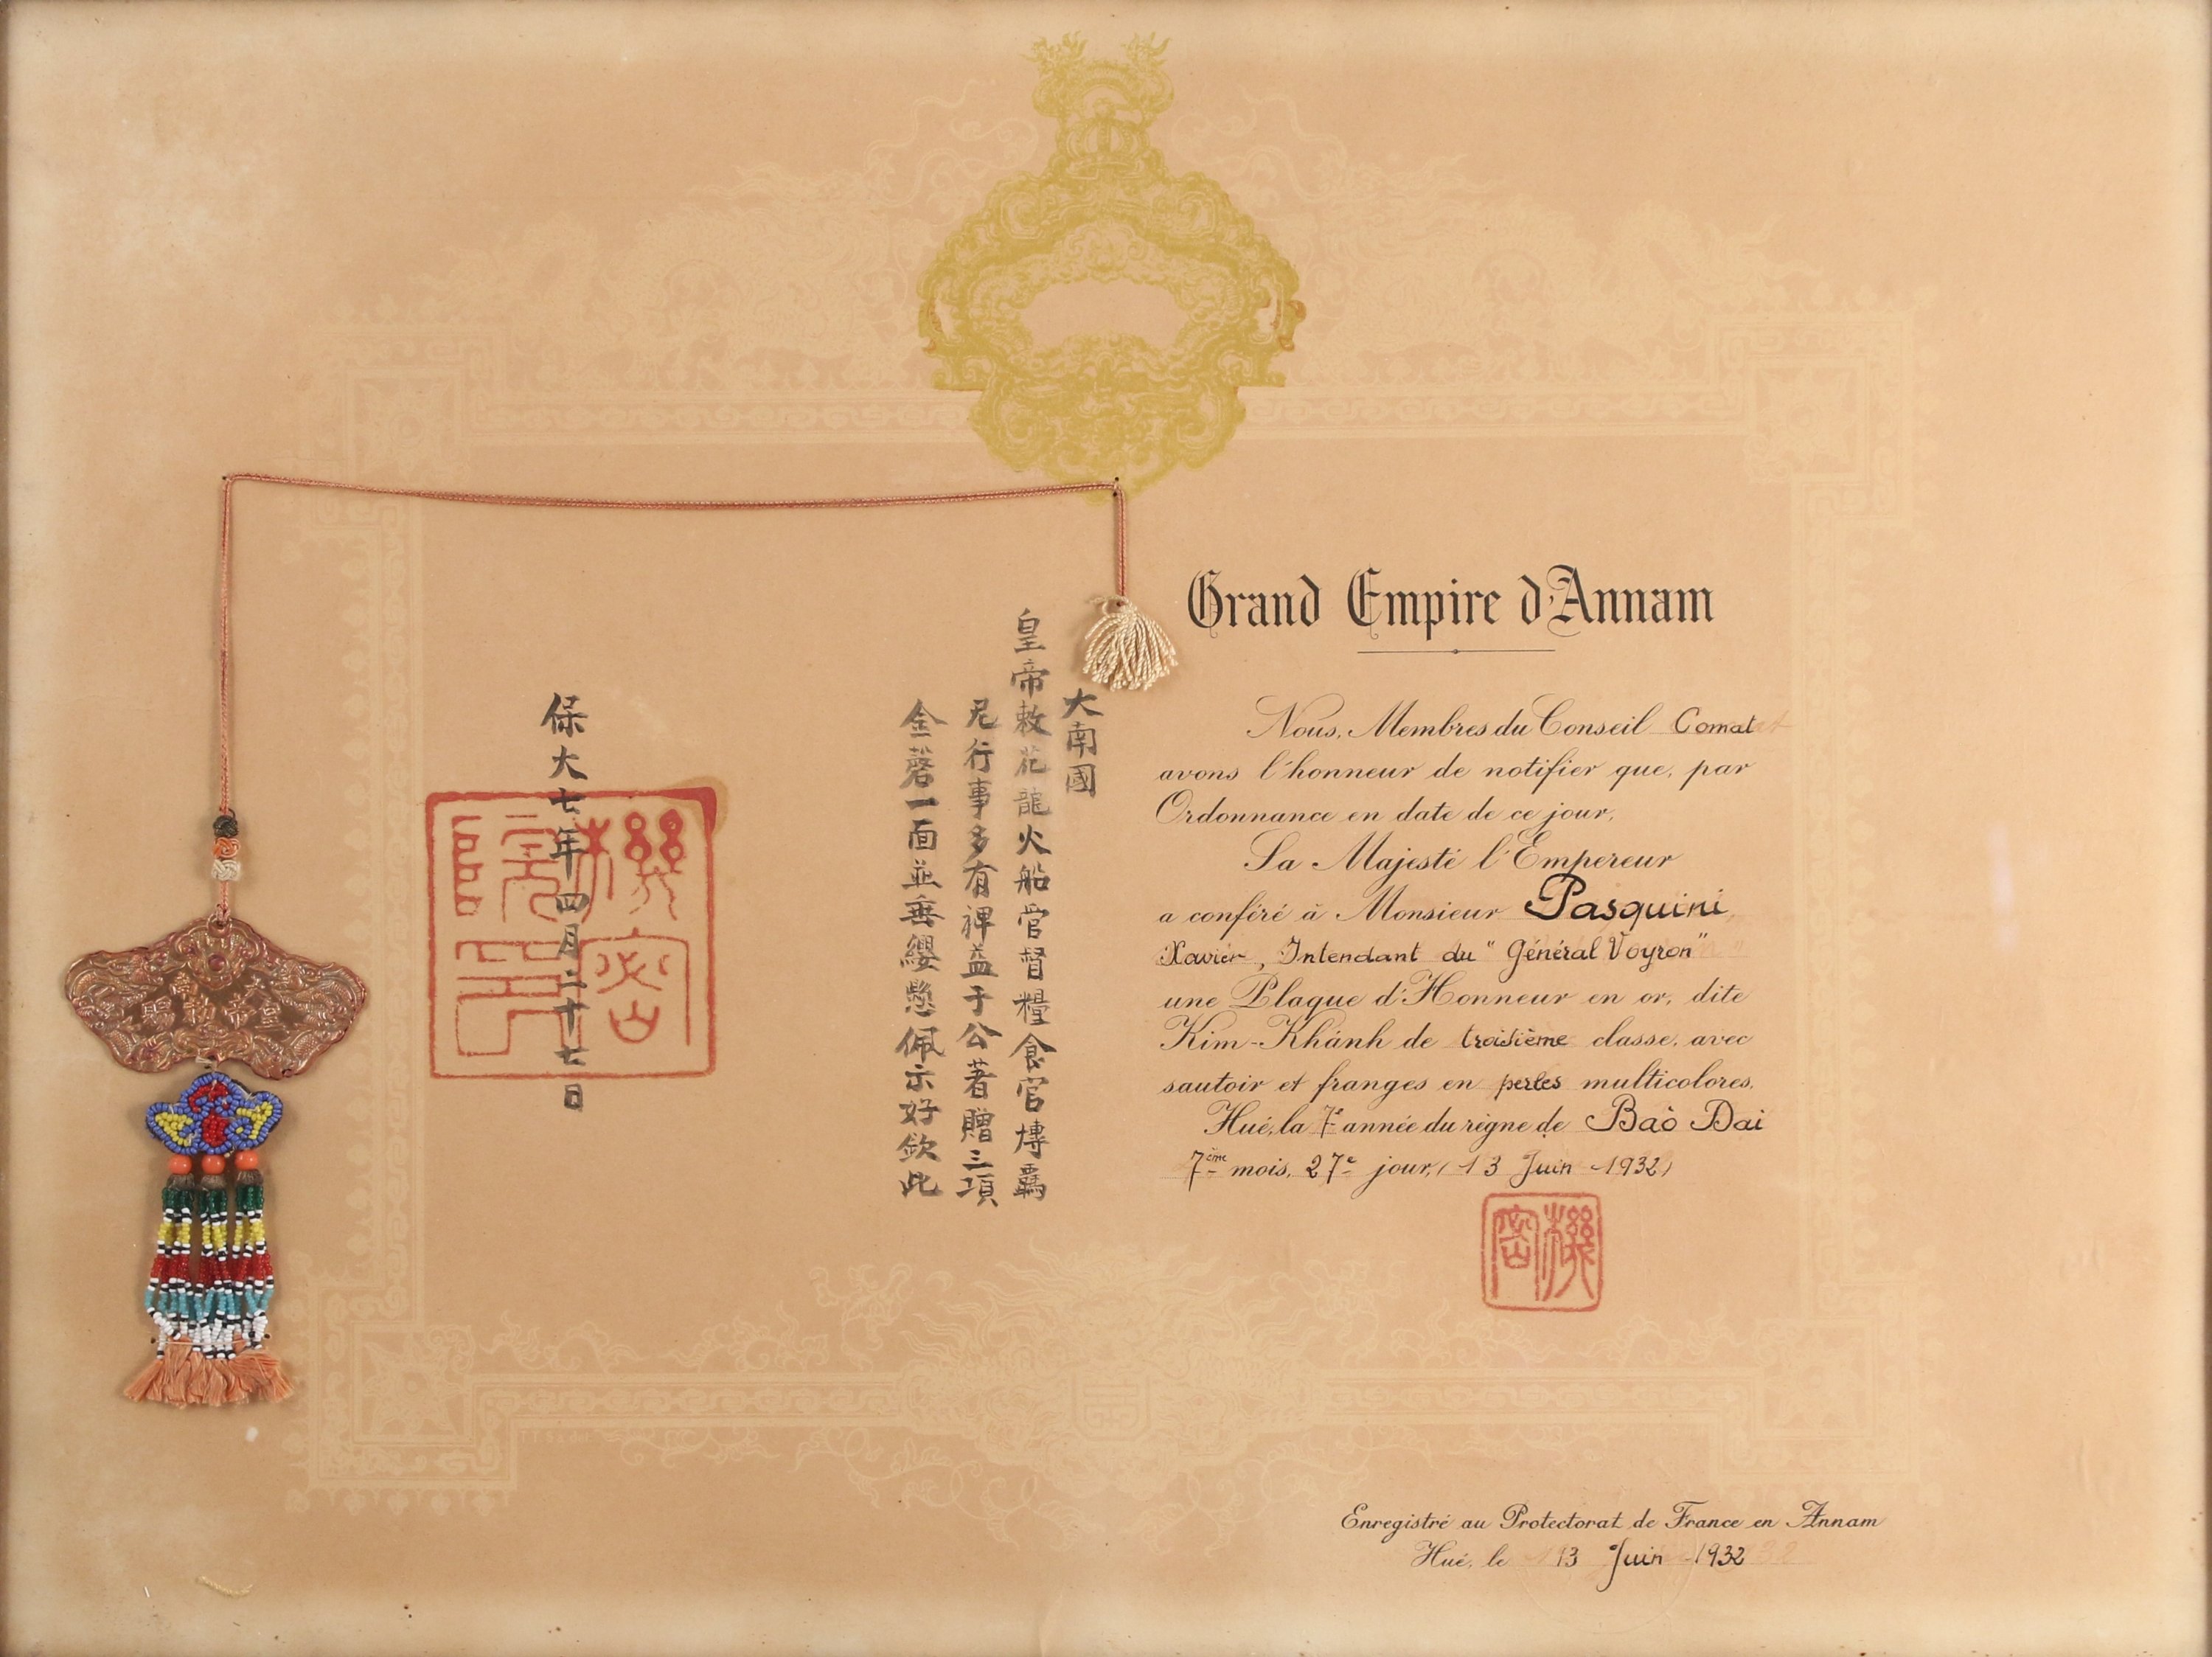 Grand Empire d'Annam
Nous, Membres du Conseil Comat
avons l'honneur de notifier que, par
Ordonnance en date de ce jour,
Sa Majesté l'Empereur
a conféré à Monsieur Pasquini
Xavier, Intendant du "Général Voyron"
une Plaque d'Honneur en or, dite
Kim-Khánh de troisième classe, avec
sautoir et franges en perles multicolores.
Hué, la 7e année du règne de Baò Dai
7ème mois, 27e jour, (13 Juin 1932)
機密
Enregistré au Protectorat de France en Annam
Hué, le 13 Juin 1932
大南國
皇帝敕花龍火船官督糧食官
尼行事多有裨益于公著贈三項
金磬一面並垂纓懸佩示好欽此
保大七年四月二十七日
機密院印